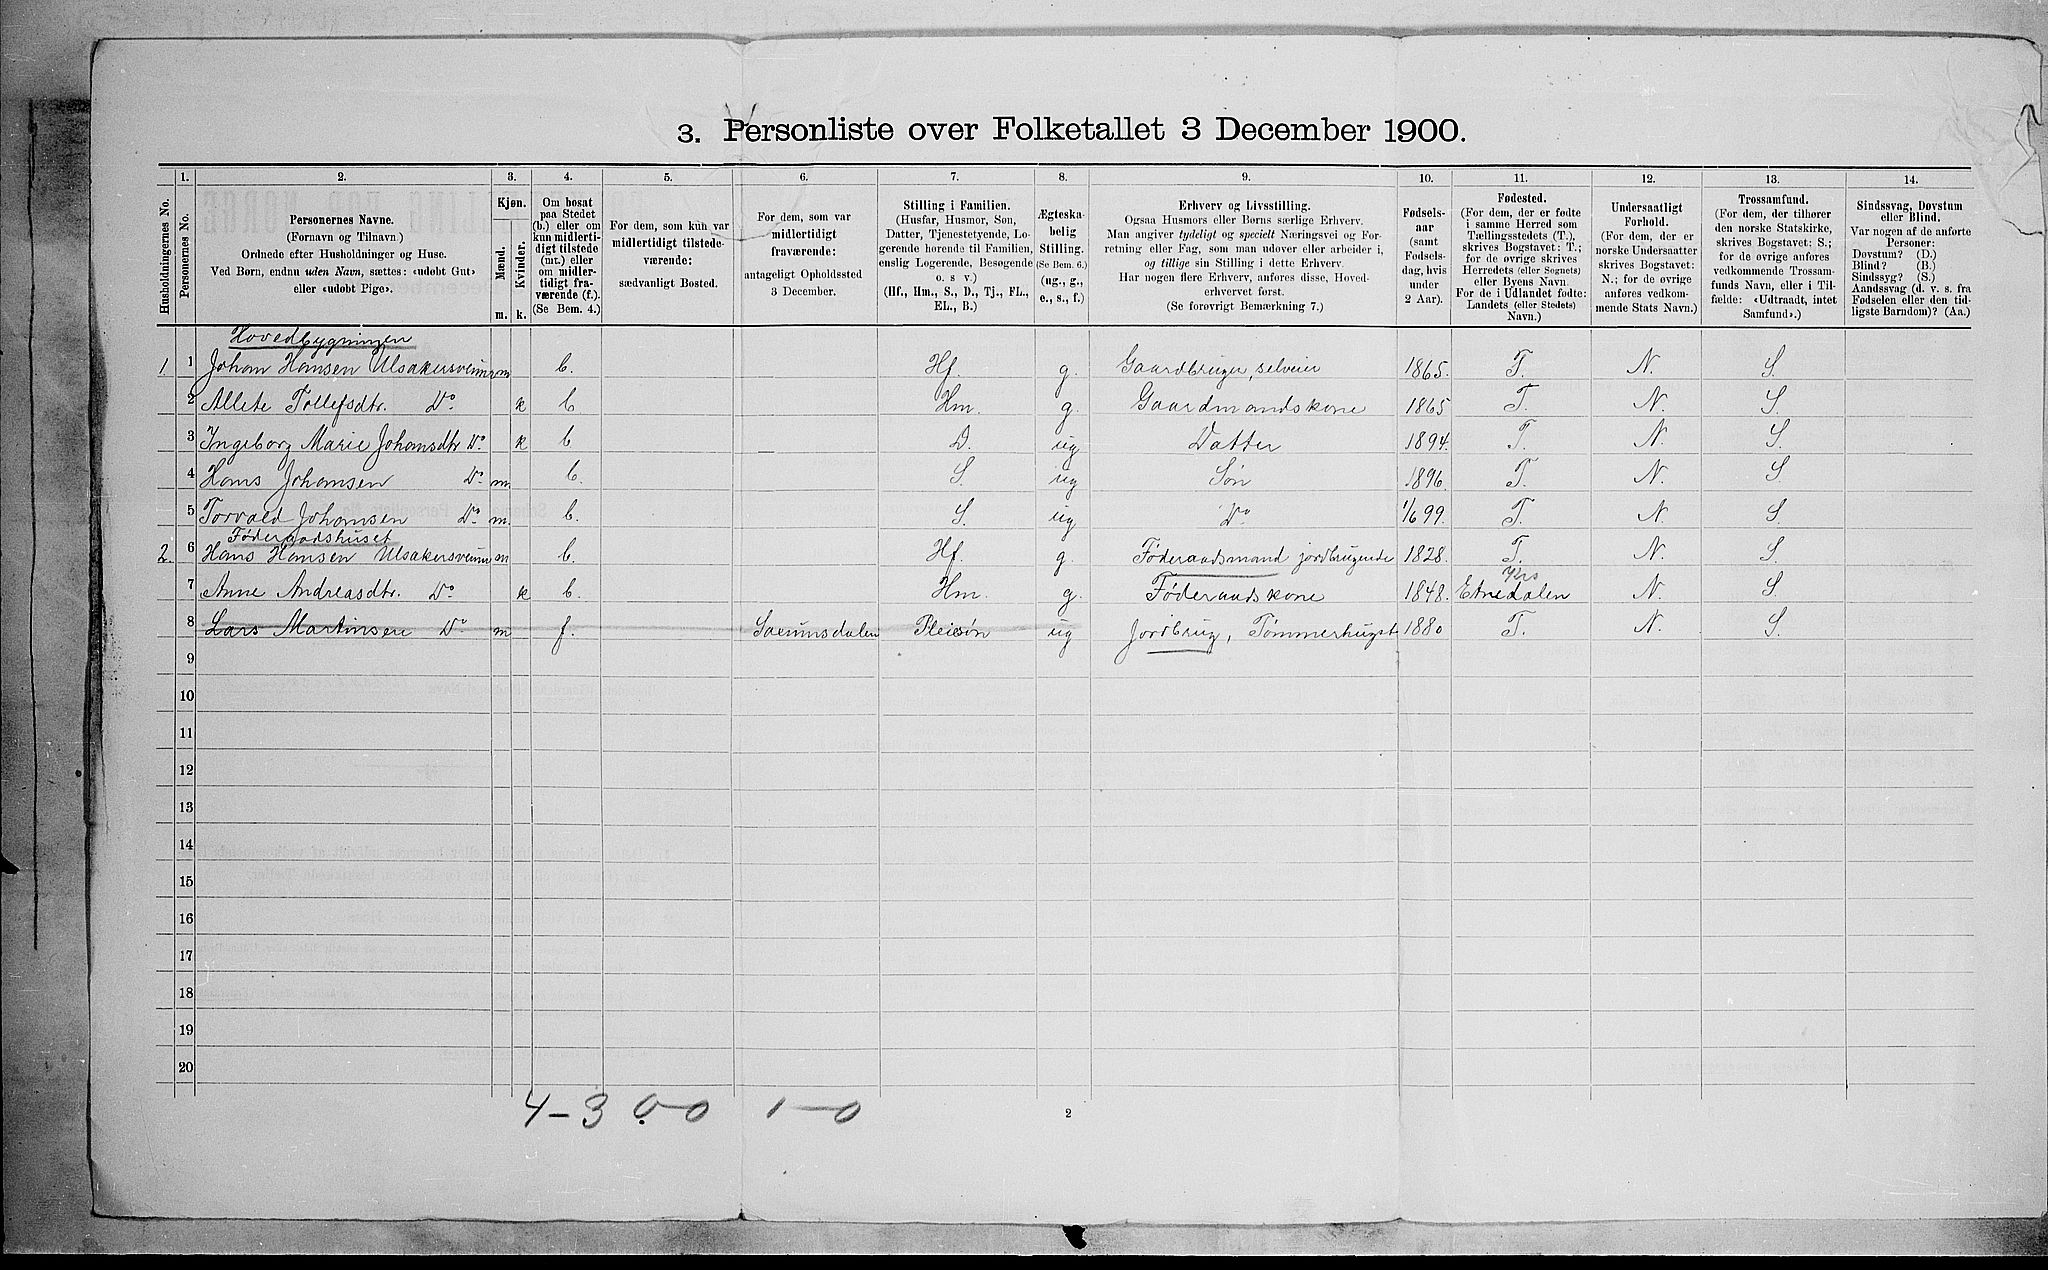 3. Personliste over Folketallet 3 December 1900.
1. 2. 3. 4. 5. 6. 7. 8. 9. 10. 11. 12. 13. 14.
Husholdningernes No.
Personernes No.
Personernes Navne.
(Fornavn og Tilnavn)
Ordnede efter Husholdninger og Huse.
Ved Børn, endnu uden Navn, sættes: «udøbt Gut»
eller «udøbt Pige».
Kjøn.
Mænd.
Kvinder.
m. k.
Om bosat
paa Stedet
(b.) eller om
kun midlerti-
digt tilstede
(mt.) eller
om midler-
tidigt fra-
værende (f.).
(Se Bem. 4.)
For dem, som kun var
midlertidigt tilstede-
værende:
sædvanligt Bosted.
For dem, som var
midlertidigt
fraværende:
antageligt Opholdssted
3 December.
Stilling i Familien.
(Husfar, Husmor, Søn,
Datter, Tjenestetyende, Lo-
gerende hørende til Familien,
enslig Logerende, Besøgende
o. s v.)
(Hf., Hm., S., D., Tj., FL.,
EL., B.)
Ægteska-
belig
Stilling.
(Se Bem. 6.)
(ug., g.,
e., s., f.)
Erhverv og Livsstilling.
Ogsaa Husmors eller Børns særlige Erhverv.
Man angiver tydeligt og specielt Næringsvei og For-
retning eller Fag, som man udover eller arbeider i,
og tillige sin Stilling i dette Erhverv.
Har nogen flere Erhverv, anføres disse, Hoved-
erhvervet først.
(Se forøvrigt Bemærkning 7.)
Fødsels-
aar
(samt
Fødsels-
dag, hvis
under
2 Aar).
Fødested.
(For dem, der er fødte
i samme Herred som
Tællingsstedets (T.),
skrives Bogstavet: T.;
for de øvrige skrives
Herredets (eller Sognets)
eller Byens Navn.
For de i Udlandet fødte:
Landets (eller Stedets)
Navn.)
Undersaatligt
Forhold.
(For dem, der er
norske Undersaatter
skrives Bogstavet:
N.; for de øvrige
anføres vedkom-
mende Stats Navn.)
Trossamfund.
(For dem, der tilhører
den norske Statskirke,
skrives Bogstavet: S.;
for de øvrige anføres
vedkommende Trossam-
funds Navn, eller i Til-
fælde: «Udtraadt, intet
Samfund».)
Sindssvag, Døvstum
eller Blind.
Var nogen af de anførte
Personer:
Døvstum? (D.)
Blind? (B.)
Sindssyg? (S.)
Aandssvag (d. v. s. fra
Fødselen eller den tid-
ligste Barndom)? (Aa.)
Hovedbygningen
1. 1 Johan Hansen Ulsakersveum m b. Hf. g. Gaardbruger, selveier 1865. T. N. S.
2 Allete Tollefsdtr. Do k b Hm. g. Gaardmandskone 1865 T. N. S.
3 Ingeborg Marie Johansdtr Do k b D. ug Datter 1894. T. N. S.
4 Hans Johansen Do m b. S. ug Søn 1896. T. N. S.
5 Torvald Johansen Do m. b. S. ug Do 1/6 99. T. N. S.
Føderaadshuset
2. 6 Hans Hansen Ulsakersveum m b. Hf. g. Føderaadsmand jordbrugende 1828. T. N. S.
7 Anne Andreasdtr. Do k b. Hm. g. Føderaadskone 1848. Etnedalen N. S.
8 Lars Martinsen Do m f. Pleiesøn ug Jordbrug, Tømmerhugst 1880 T. N. S.
9
10
11
12
13
14
15
16
17
18
19
20
4-3 0-0 1-0
2